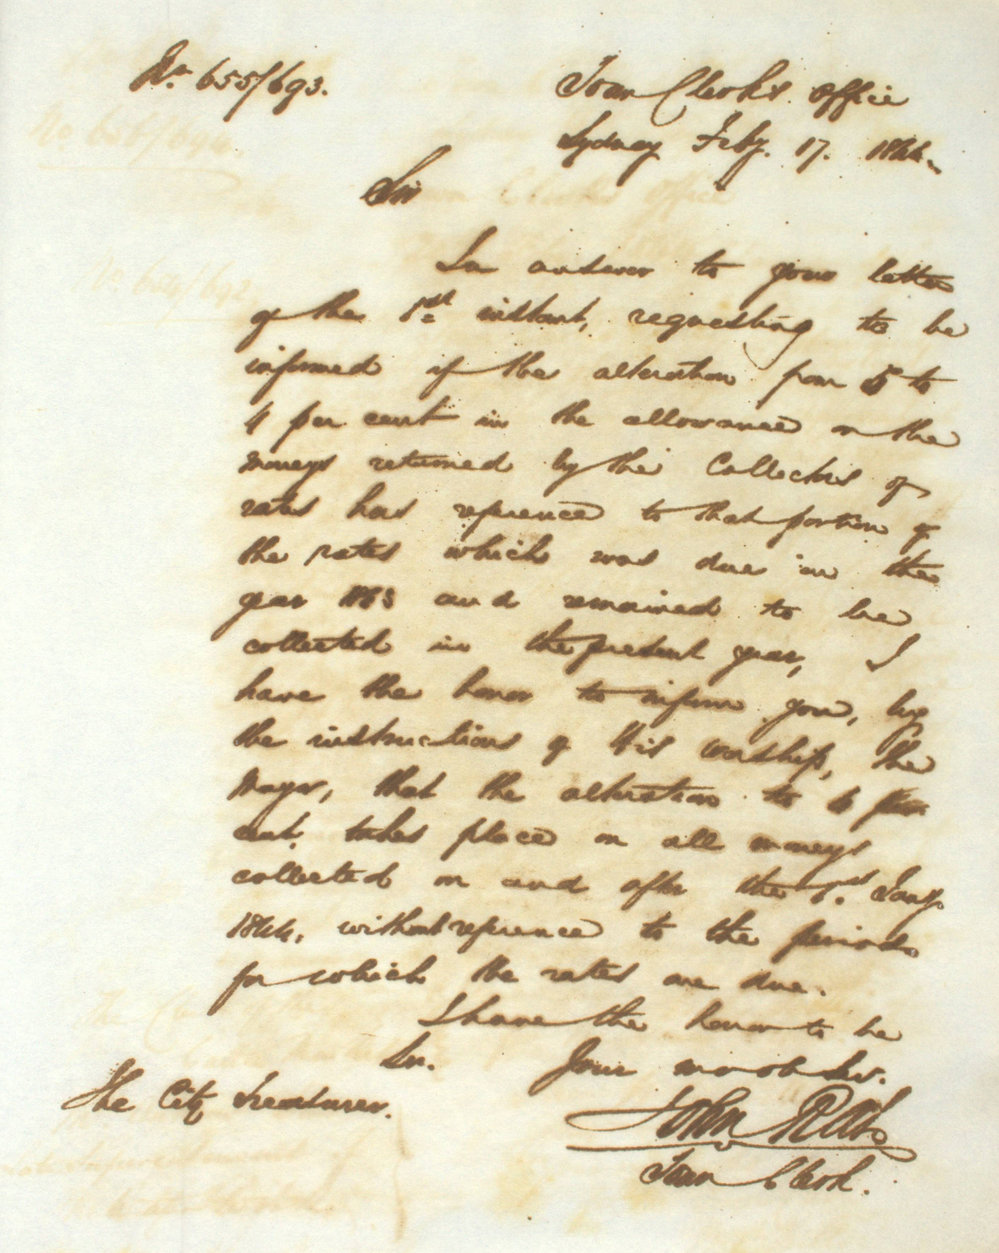 No. 655/693.
Town Clerk's Office
Sydney Feby. 17. 1864.
Sir
In answer to your letter
of the 1st instant, requesting to be
informed if the alteration from 5 to
4 per cent in the allowance on the
moneys returned by the Collectors of
rates has reference to that portion of
the rates which was due in the
year 1863 and remained to be
collected in the present year, I
have the honor to inform you, by
the instructions of His Worship, the
Mayor, that the alteration to 4 per
cent. takes place on all moneys
collected on and after the 1st Jany.
1864, without reference to the periods
for which the rates are due.
I have the honor to be
Sir.
Your most obdt. Ser.
The City Treasurer.
John Rae
Town Clerk.